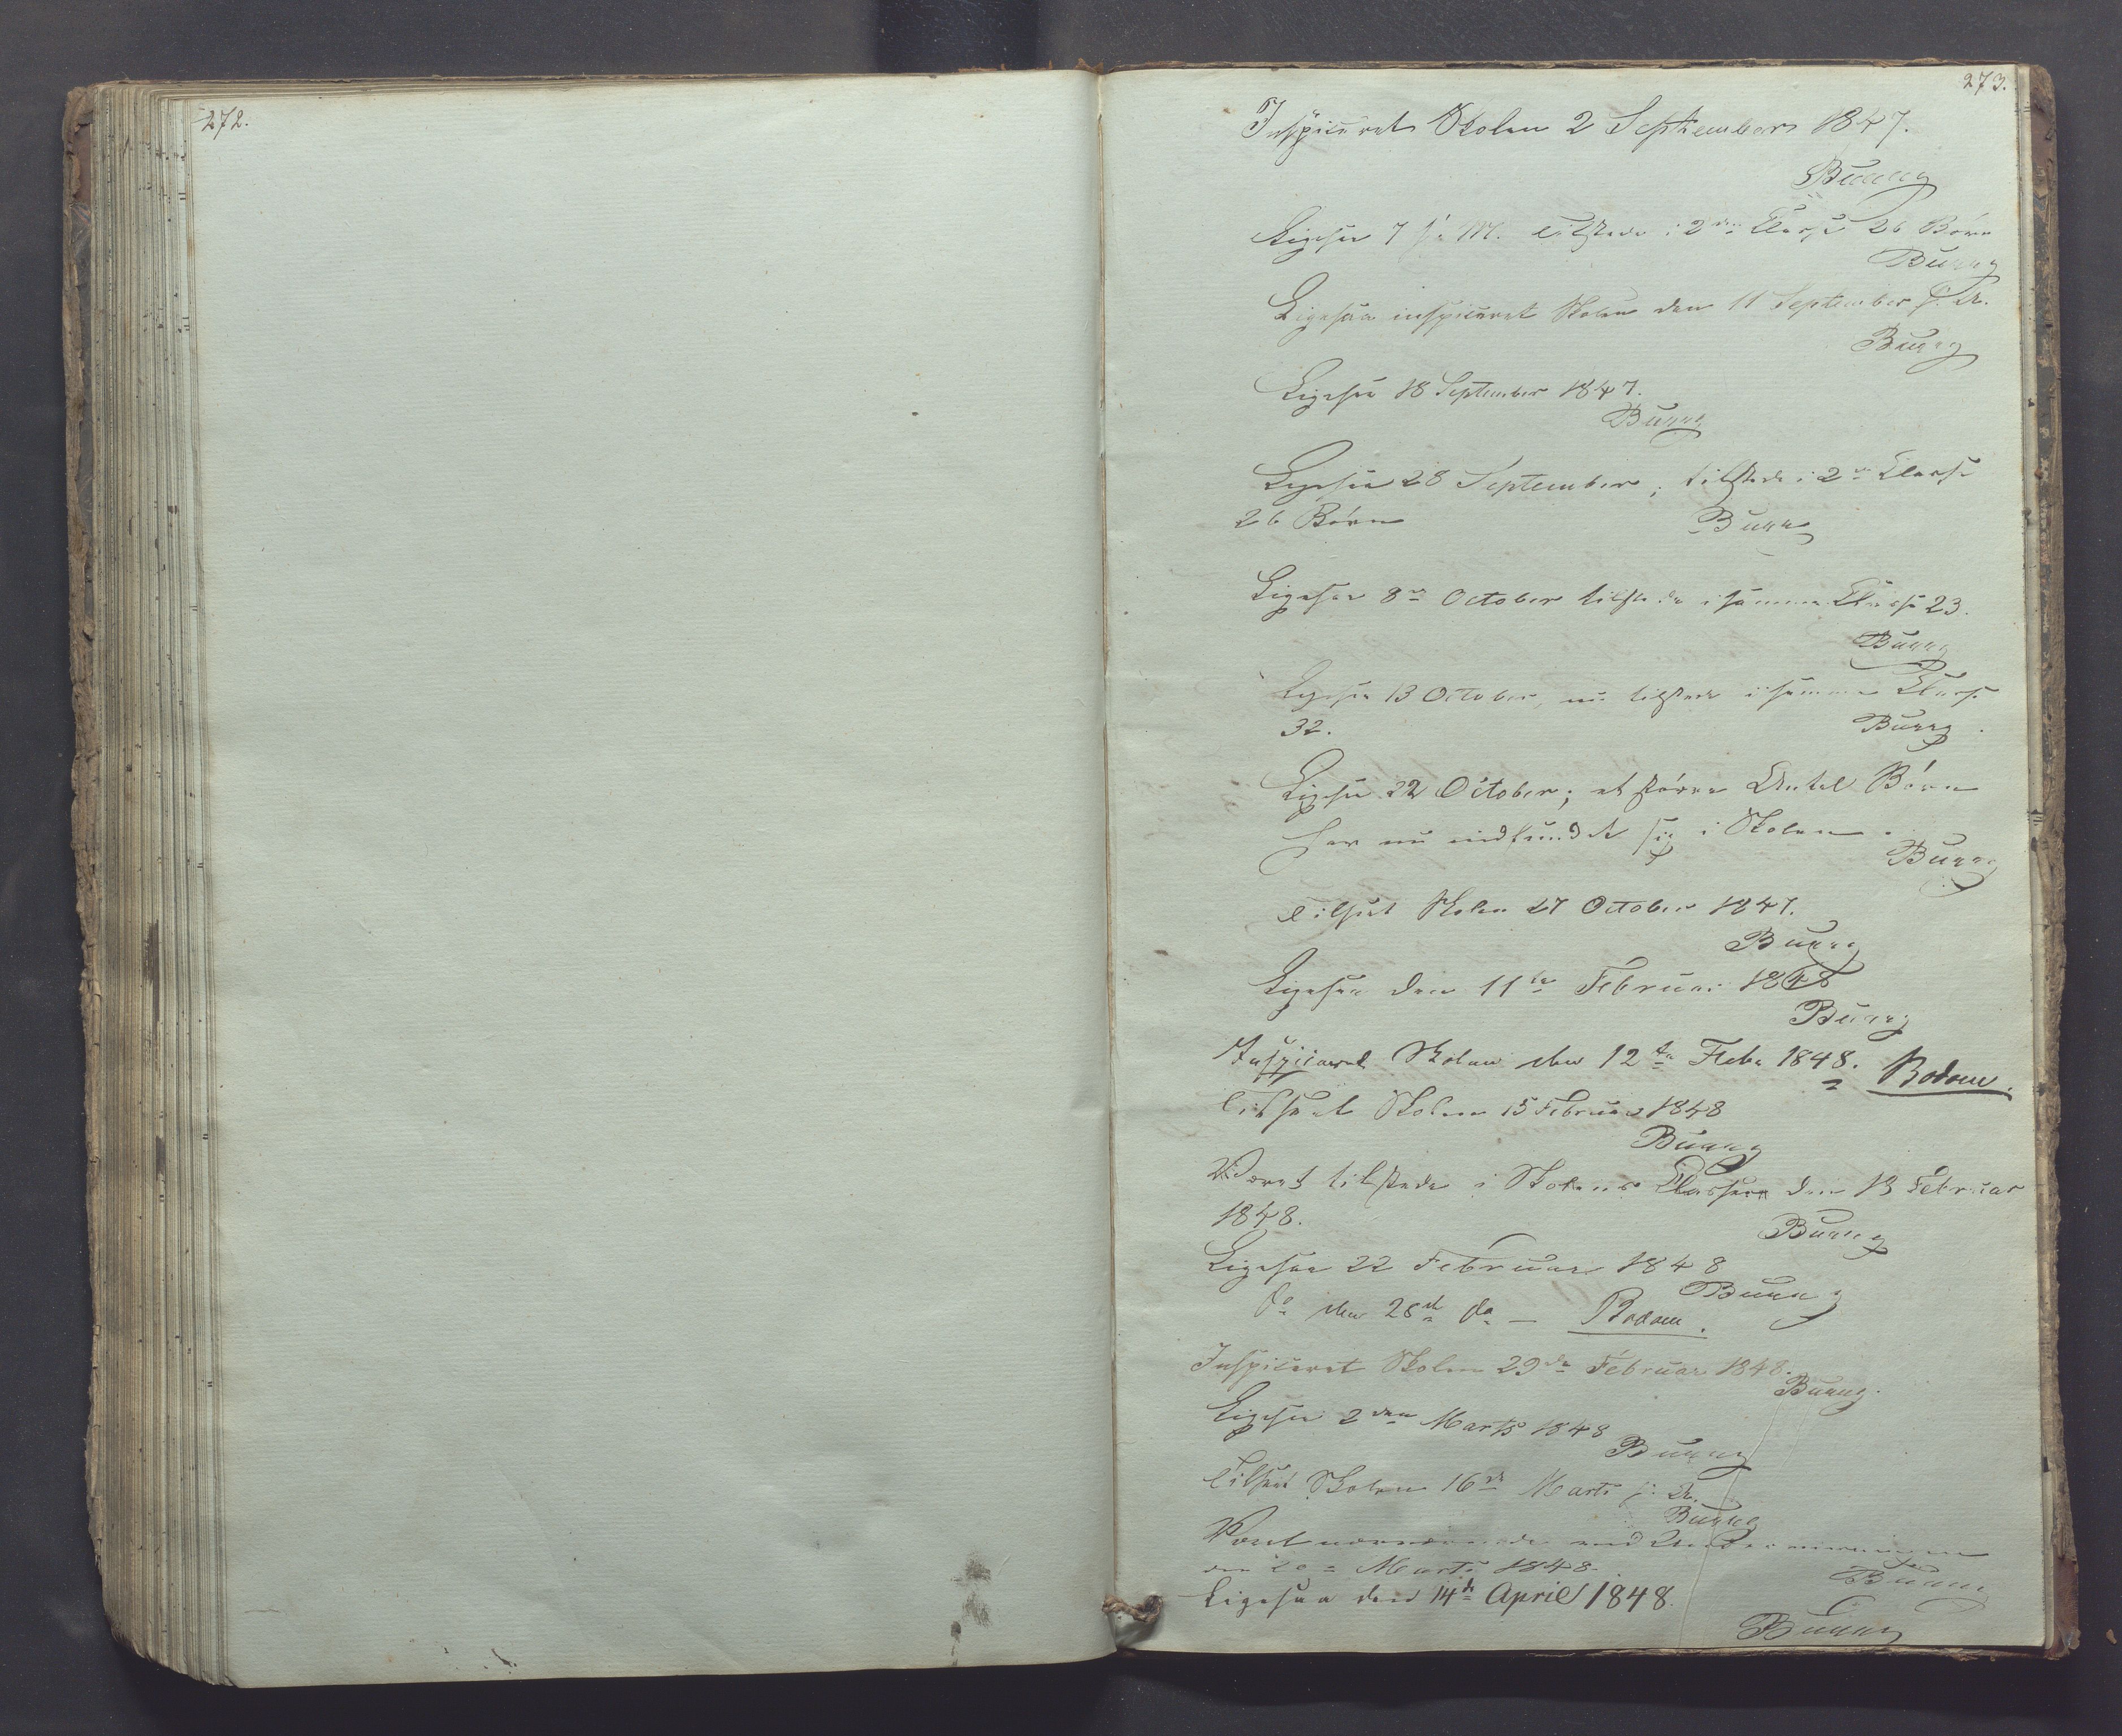 272.
273.
Inspiceret Skolen 2 September 1847.
Buung
Ligesaa 7 s. M. tilstede i 2den Classe 26 Børn
Buung
Ligesaa inspiceret Skolen den 11 September s. A.
Buung
Ligesaa 18 September 1847.
Buung
Ligesaa 28 September, tilstede i 2den Classe
26 Børn Buung
Ligesaa 8de October tilstede i samme Classe 23.
Buung
Ligesaa 13 October, nu tilstede i samme Classe
32. Buung
Ligesaa 22 October; et større Antal Børn
har nu indfundet sig i Skolen.
Buung
Tilseet Skolen 27 October 1847.
Buung
Ligesaa den 11te Februar 1848
Buung
Inspiceret Skolen den 12te Feb. 1848. Bodom.
Tilseet Skolen 15 Februar 1848
Buung
Været tilstede i Skolens Classer den Februar
1848. Buung
Ligesaa 22 Februar 1848
Buung
do den 28de do — Bodom.
Inspiceret Skolen 29de Februar 1848.
Buung.
Ligesaa 2den Marts 1848
Buung
Tilseet Skolen 16de Marts s. A.
Buung
Været nærværende ved Underviisningen
Marts 1848.
Buung
Ligesaa den 14de April 1848.
Buung